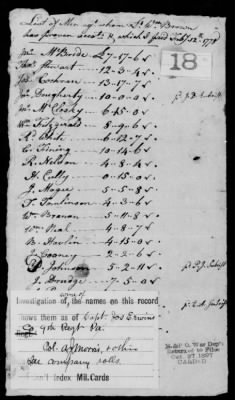 List of Men of whom Dr. Wm. Brown
has proven accts &, which I paid Feby 12th 1778
18
Jno. McBride £7-17-6
Thos. Stewart 12-3-4
Jos. Cochran 13-17-7
Jno. Dougherty 10-0-0
Wm. McClosky 6-15-0
Wm. Fitzgerald 8-9-6
R. White 6-12-7
C. Fining 10-14-6
R. Neldon 4-8-4
H. Colly 0-15-0
J. Magee 5-5-8
J. Tomlinson 4-3-6
Wm. Branon 5-11-8
Wm. Neal 4-8-2
B. Havlin 4-15-0
J. Cooney 2-2-6
D. Johnson 5-2-11
J. Donage 7-5-0
some of
Investigation of, the names on this record
shows them as of Capt Jos Erwins
Co 9th Regt Pa.
Col. A J Morris, within
See company rolls.
Index Mil. Cards
R. & P. O. War Dep't
Returned to Files
Oct 27 1897
CARDED